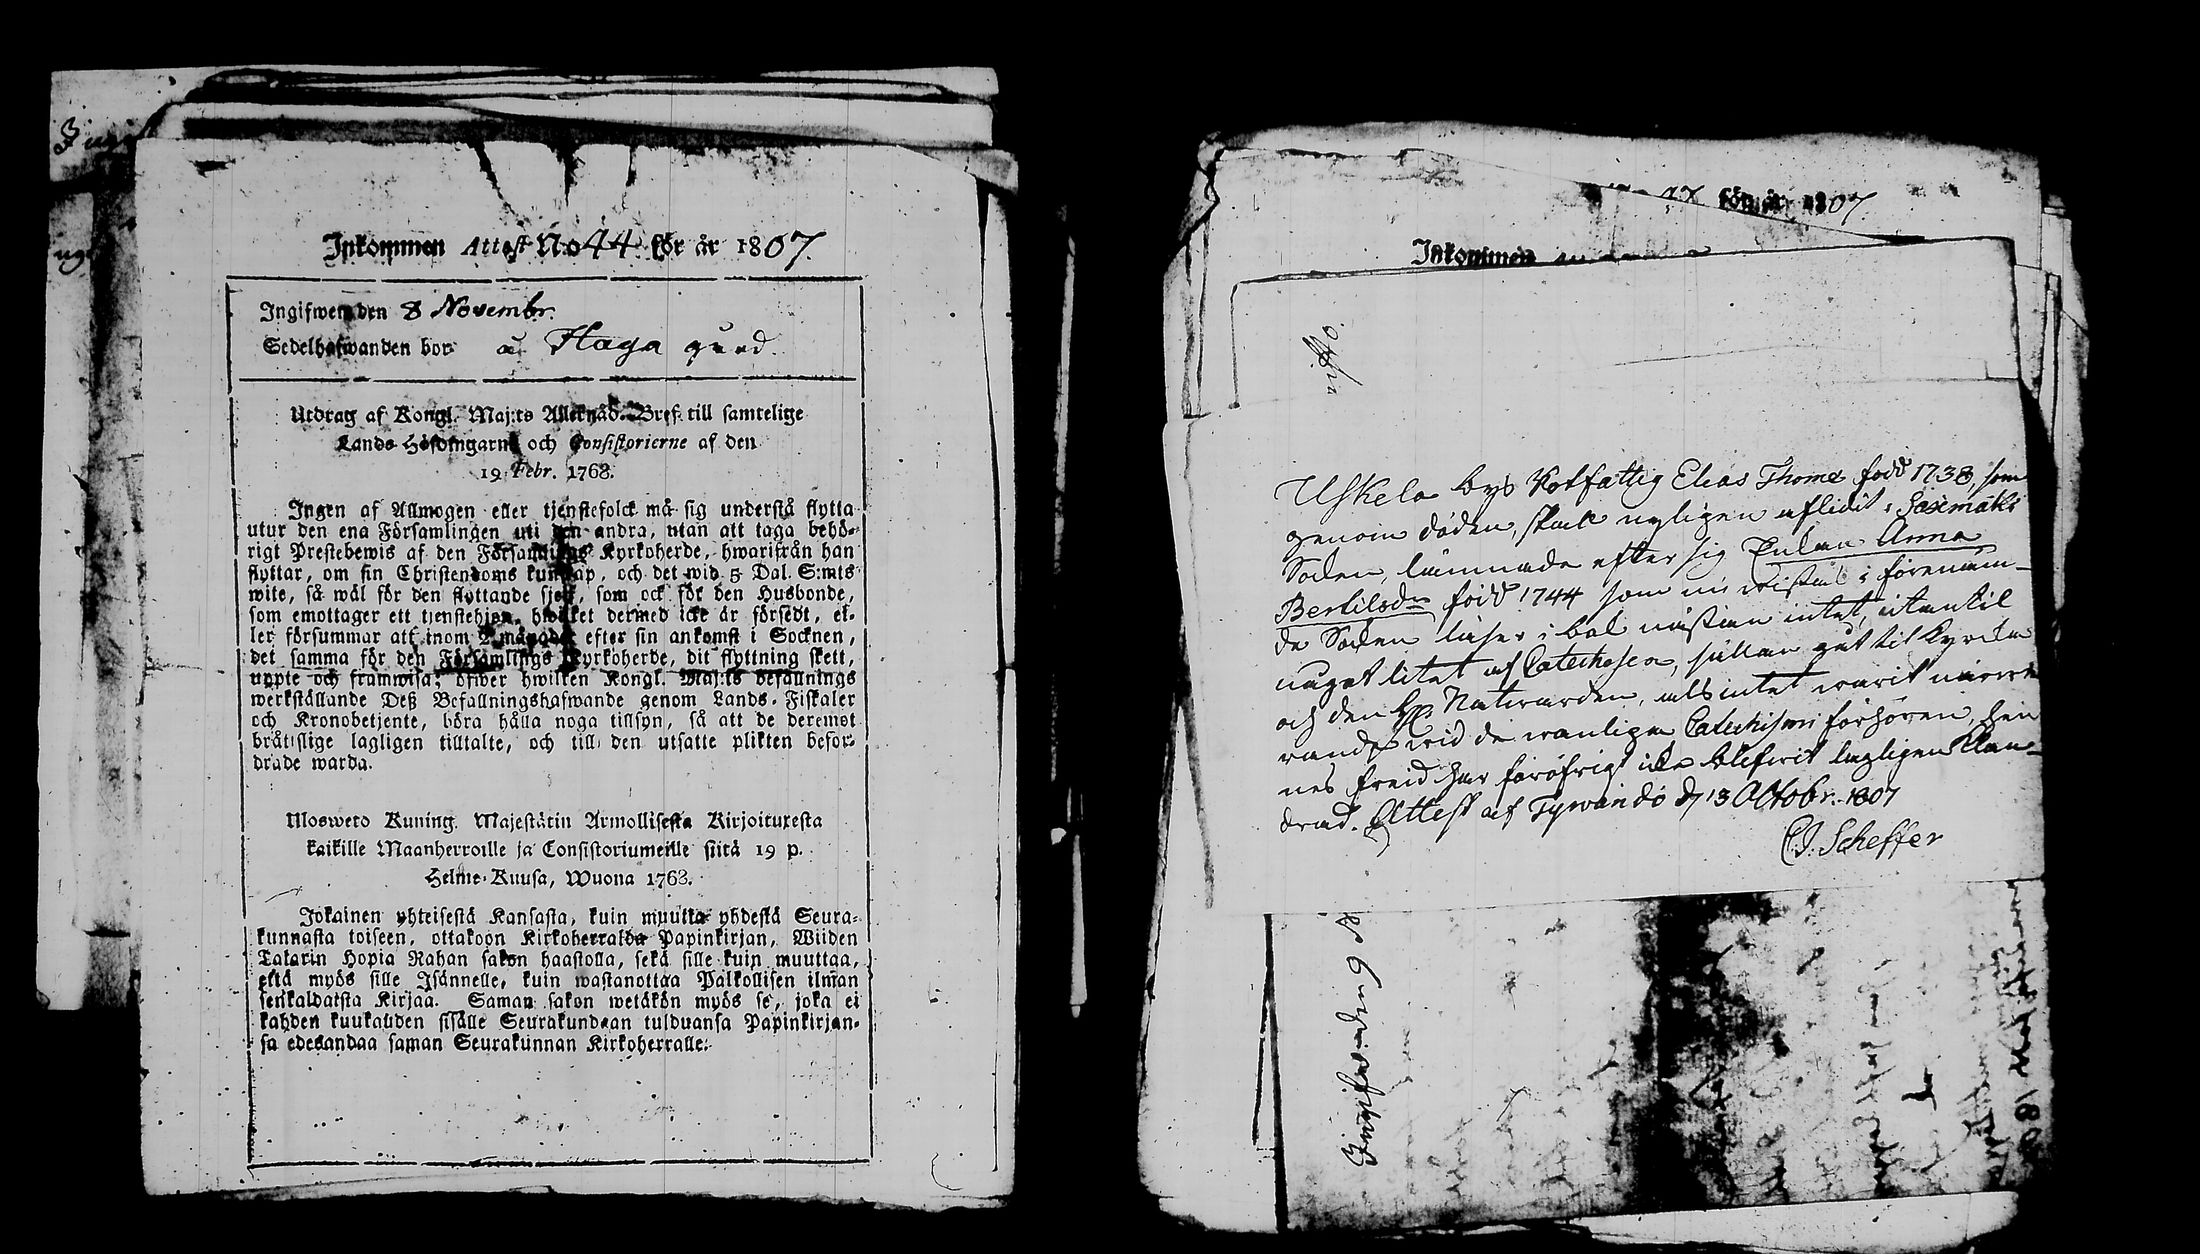 Inkommen Attest No 44 för år 1807.
Ingifwen den 8 Novembr.
Sedelhafwanden bor å Haga
Utdrag af Kongl. Maj:ts Allernåd. Bref till samtelige
Lands Höfdingarne och Consistorierne af den
19 Febr. 1768.
Ingen af Allmogen eller tjenstefolck må sig understå flytta
utur den ena Församlingen uti den andra, utan att taga behö-
rigt Prestebewis af den Församlings Kyrkoherde, hwarifrån han
flyttar, om sin Christendoms kunskap, och det wid 5 Dal. S:mts
wite, så wäl för den flyttande sjelf, som ock för den Husbonde,
som emottager ett tjenstehjon, hwilket dermed icke är försedt, el-
ler försummar att inom 2 månader efter sin ankomst i Socknen,
det samma för den Församlings Kyrkoherde, dit flyttning skett,
uppte och framwisa; öfwer hwilken Kongl. Maj:ts befallnings
werkställande Deß Befallningshafwande genom Lands-Fiskaler
och Kronobetjente, böra hålla noga tillsyn, så att de deremot
bråtslige lagligen tilltalte, och till den utsatte plikten befor-
drade warda.
Mosweto Kuning. Majestätin Armollisesta Kirjoituxesta
kaikille Maanherroille ja Consistoriumeille siitä 19 p.
Helme-Kuusa, Wuona 1768.
Jokainen yhteisestä Kansasta, kuin muutta yhdestä Seura-
kunnasta toiseen, ottakoon Kirkoherralda Papinkirjan, Wiiden
Talarin Hopia Rahan sakon haastolla, sekä sille kuin muuttaa,
että myös sille Isännelle, kuin wastanottaa Palkollisen ilman
senkaldaista Kirjaa. Saman sakon wetäkön myös se, joka ei
kahden kuukauden sisälle Seurakundaan tulduansa Papinkirjan-
sa edesandaa saman Seurakunnan Kirkoherralle.
17 för år 1807
Inkommen
Uskela bys Rotfattig Elias Thomæ född 1738, som
genom döden, skall nyligen aflidit i Saxmäki
Socken, lämnade efter sig Enkan Anna
Bertilsdr född 1744 som nu wistas i förenämn-
de Socken läser i bok nästan intet, utantil
något litet af Catechesen, sällan gåt til kyrcka
och den H. Nattwarden, als intet warit närwa
rande wid de wanliga Catechismi förhören, hen
nes freid har föröfrigt icke blifwit lagligen klan-
drad. Attest af Tyrwändö d. 13 Octobr. 1807
C.J. Scheffer
Ingifwen den 9